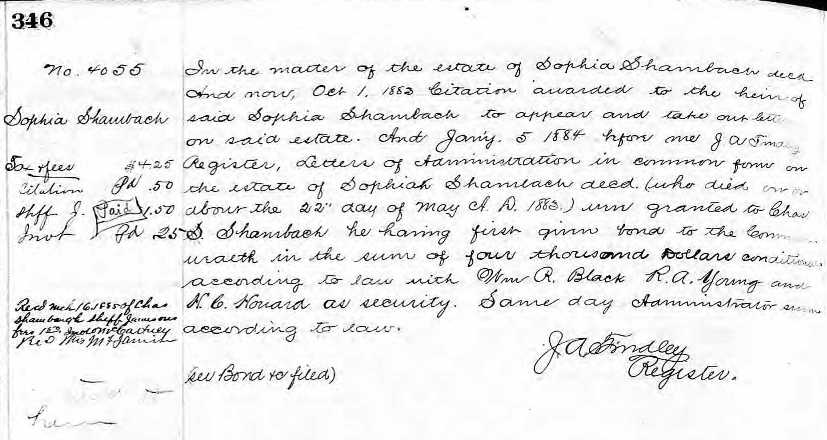 346
No. 4055
Sophia Shambach
Tax & fees $4.25
Citation Pd .50
Shff J. Paid 1.50
Invt Pd 25
Recd Mch 16, 1885 of Chas
Shambaugh Sheff Jamesons
fees 1.50
In the matter of the estate of Sophia Shambach decd
And now, Oct 1, 1883 Citation awarded to the heirs of
said Sophia Shambach to appear and take out
on said estate. And Jan'y. 5 1884 before me J A
Register, Letters of Administration in common form on
the estate of Sophiah Shambach decd. (who died on or
about the 22" day of May A. D. 1883.) were granted to Chas
S Shambach he having first given bond to the
wealth in the sum of four thousand Dollars
according to law with Wm R. Black R. A. Young and
N. C. Howard as security. Same day Administrator sworn
according to law.
J A Findley
Register.
(see Bond &c filed)